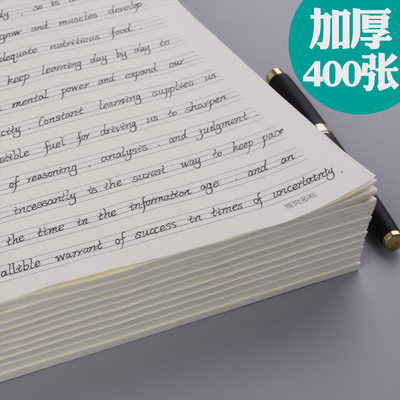 dy, so is
grow and muscles develop
dequate nutritious food
keep learning day by day to
mental power and expand our
city. Constant learning supplies us
stible fuel for driving us to sharpen
of reasoning, analysis, and judgment.
incessantly is the surest way to keep pace
the time in the information age, and an
allible warrant of success in times of uncertainty.
加厚
400张